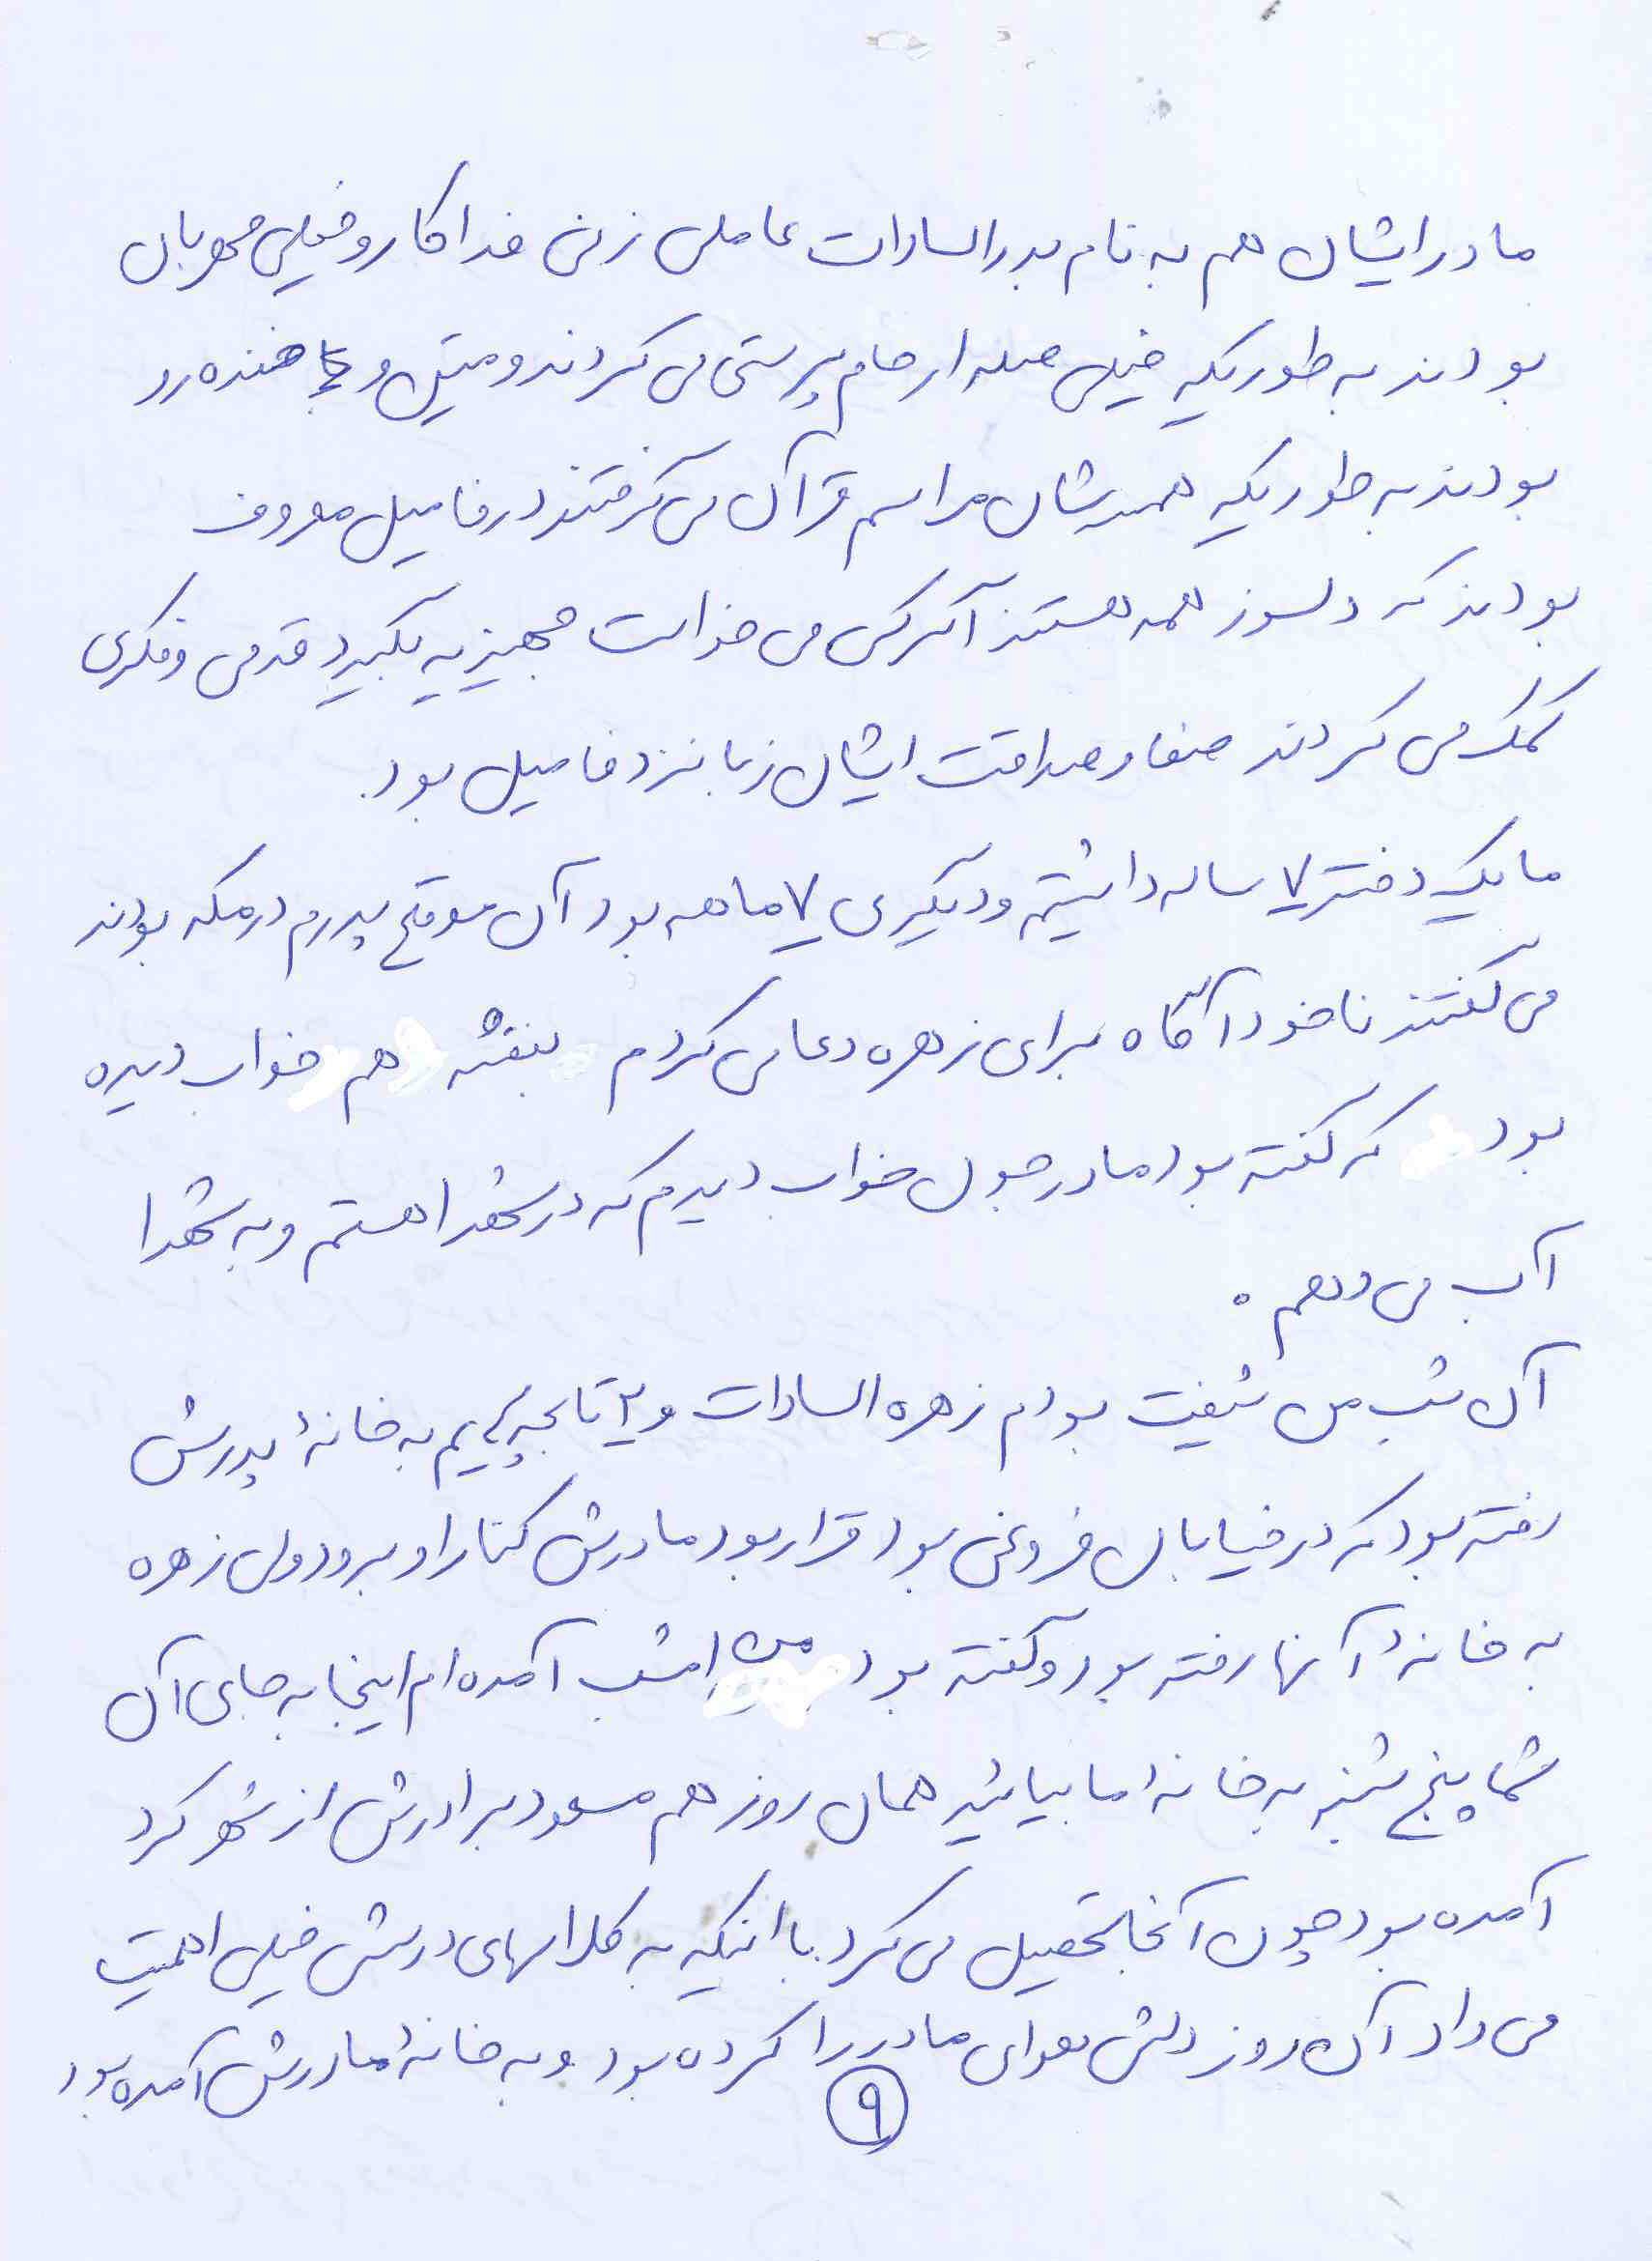 مادر ایشان هم به نام بدرالسادات عاملی زنی فداکار و خیلی مهربان
بودند به طوریکه خیلی صله ارحام پرستی می کردند و متین و خنده رو
بودند به طوریکه همیشان مراسم قرآن می گرفتند در فامیل معروف
بودند که دلسوز همه هستند اگر کسی می خواست جهیزیه بگیرد قدمی و فکری
کمک می کردند صفا و صداقت ایشان زبانزد فامیل بود.
ما یک دختر ۷ ساله داشتیم و دیگری ۷ ماهه بود آن موقع پدرم در مکه بودند
می گفتند ناخودآگاه برای زهره دعا می کردم بنفشه هم خواب دیده
بود که گفته بود مادر جون خواب دیدم که در شهدا هستم و به شهدا
آب می دهم.
آن شب من شیفت بودم زهره السادات و ۲ تا بچه هایم به خانهٔ پدرش
رفته بود که در خیابان فروغی بود قرار بود مادرش کنار او برود ولی زهره
به خانهٔ آنها رفته بود و گفته بود من امشب آمده ام اینجا به جای آن
شما پنج شنبه به خانه ما بیائید همان روز هم مسعود برادرش از شهرکرد
آمده بود چون آنجا تحصیل می کرد با اینکه به کلاسهای درسش خیلی اهمیت
می داد آن روز دلش هوای مادر را کرده بود و به خانهٔ مادرش آمده بود
۹